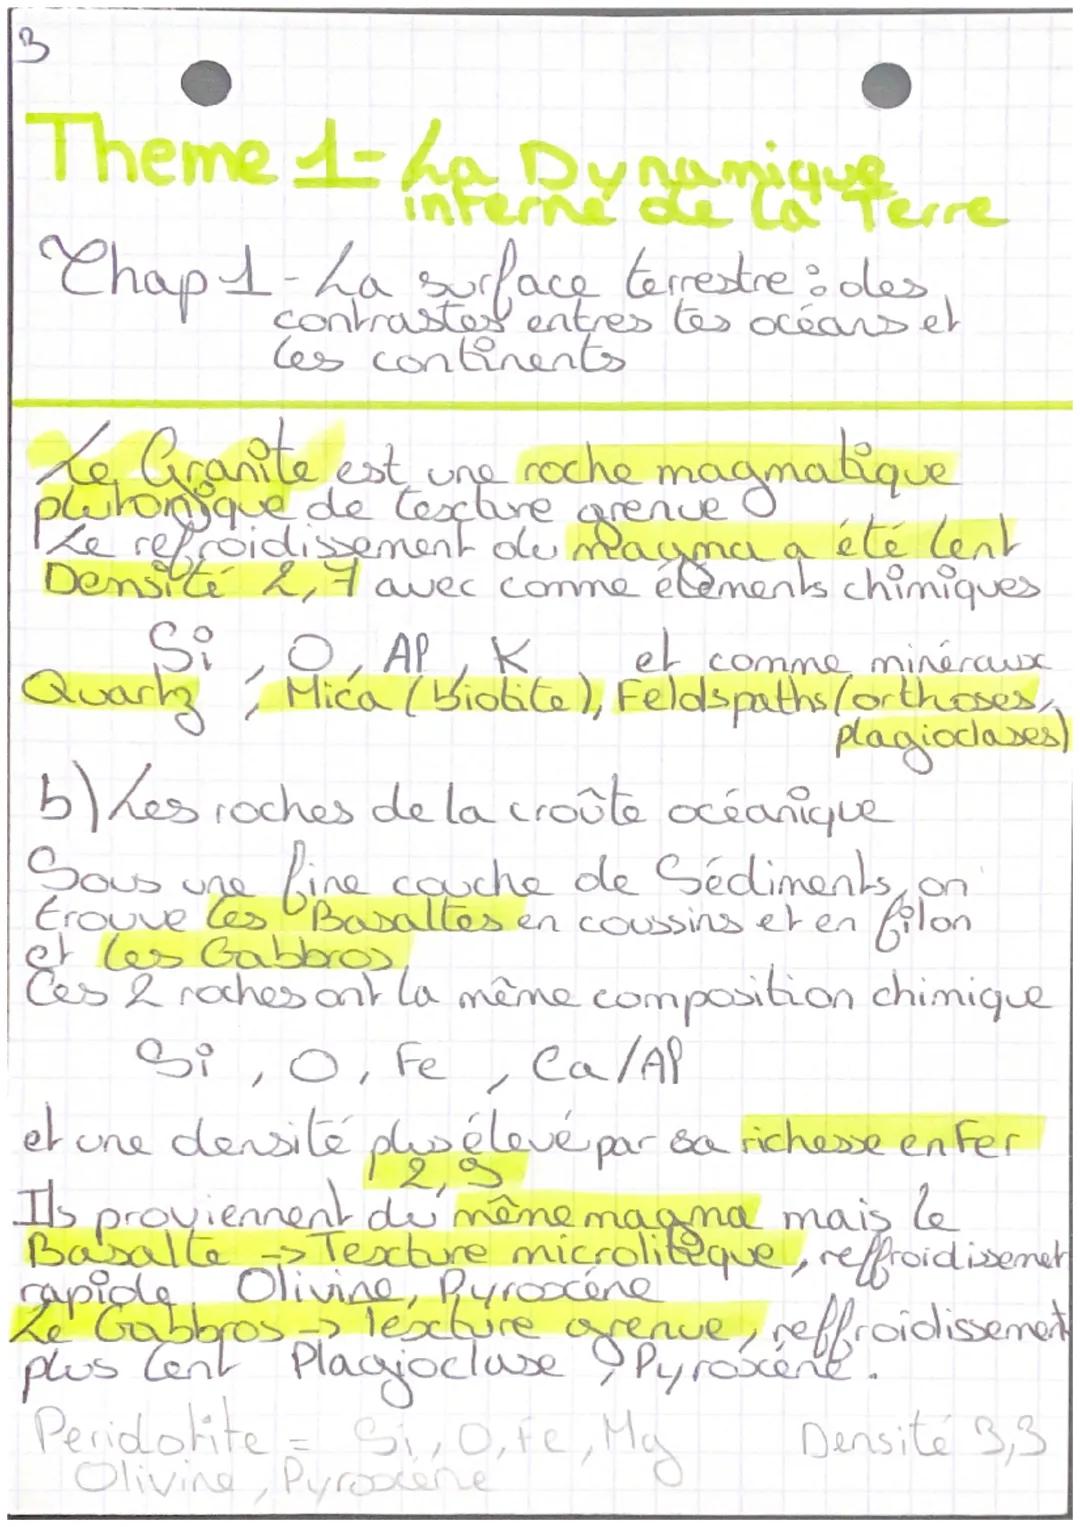 3
Theme 1- La Dynamique
interne de la Terre
Chap 1 - La surface terrestre : des
contrastes entres les océans et
les continents
Le Granite est une roche magmatique
plutonique de texture grenue
Le refroidissement du magma a été lent
Densité 2,7 avec comme éléments chimiques
Si, O, Al, K et comme minéraux
Quartz, Mica (biotite), Feldspaths (orthoses,
plagioclases)
b) Les roches de la croûte océanique
Sous une fine couche de Sédiments, on
trouve les Basaltes en coussins et en filon
et les Gabbros
Ces 2 roches ont la même composition chimique
Si, O, Fe, Ca/Al
et une densité plus élevé par sa richesse en Fer
2,9
Ils proviennent du même magma mais le
Basalte -> Texture microlitèque, reffroidissemet
rapide Olivine, Pyroxéne
Le Gabbros -> Texture grenue, reffroidissement
plus lent Plagioclase, Pyroxéne.
Peridotite = Si, O, Fe, Mg Densité 3,3
Olivine, Pyroxène